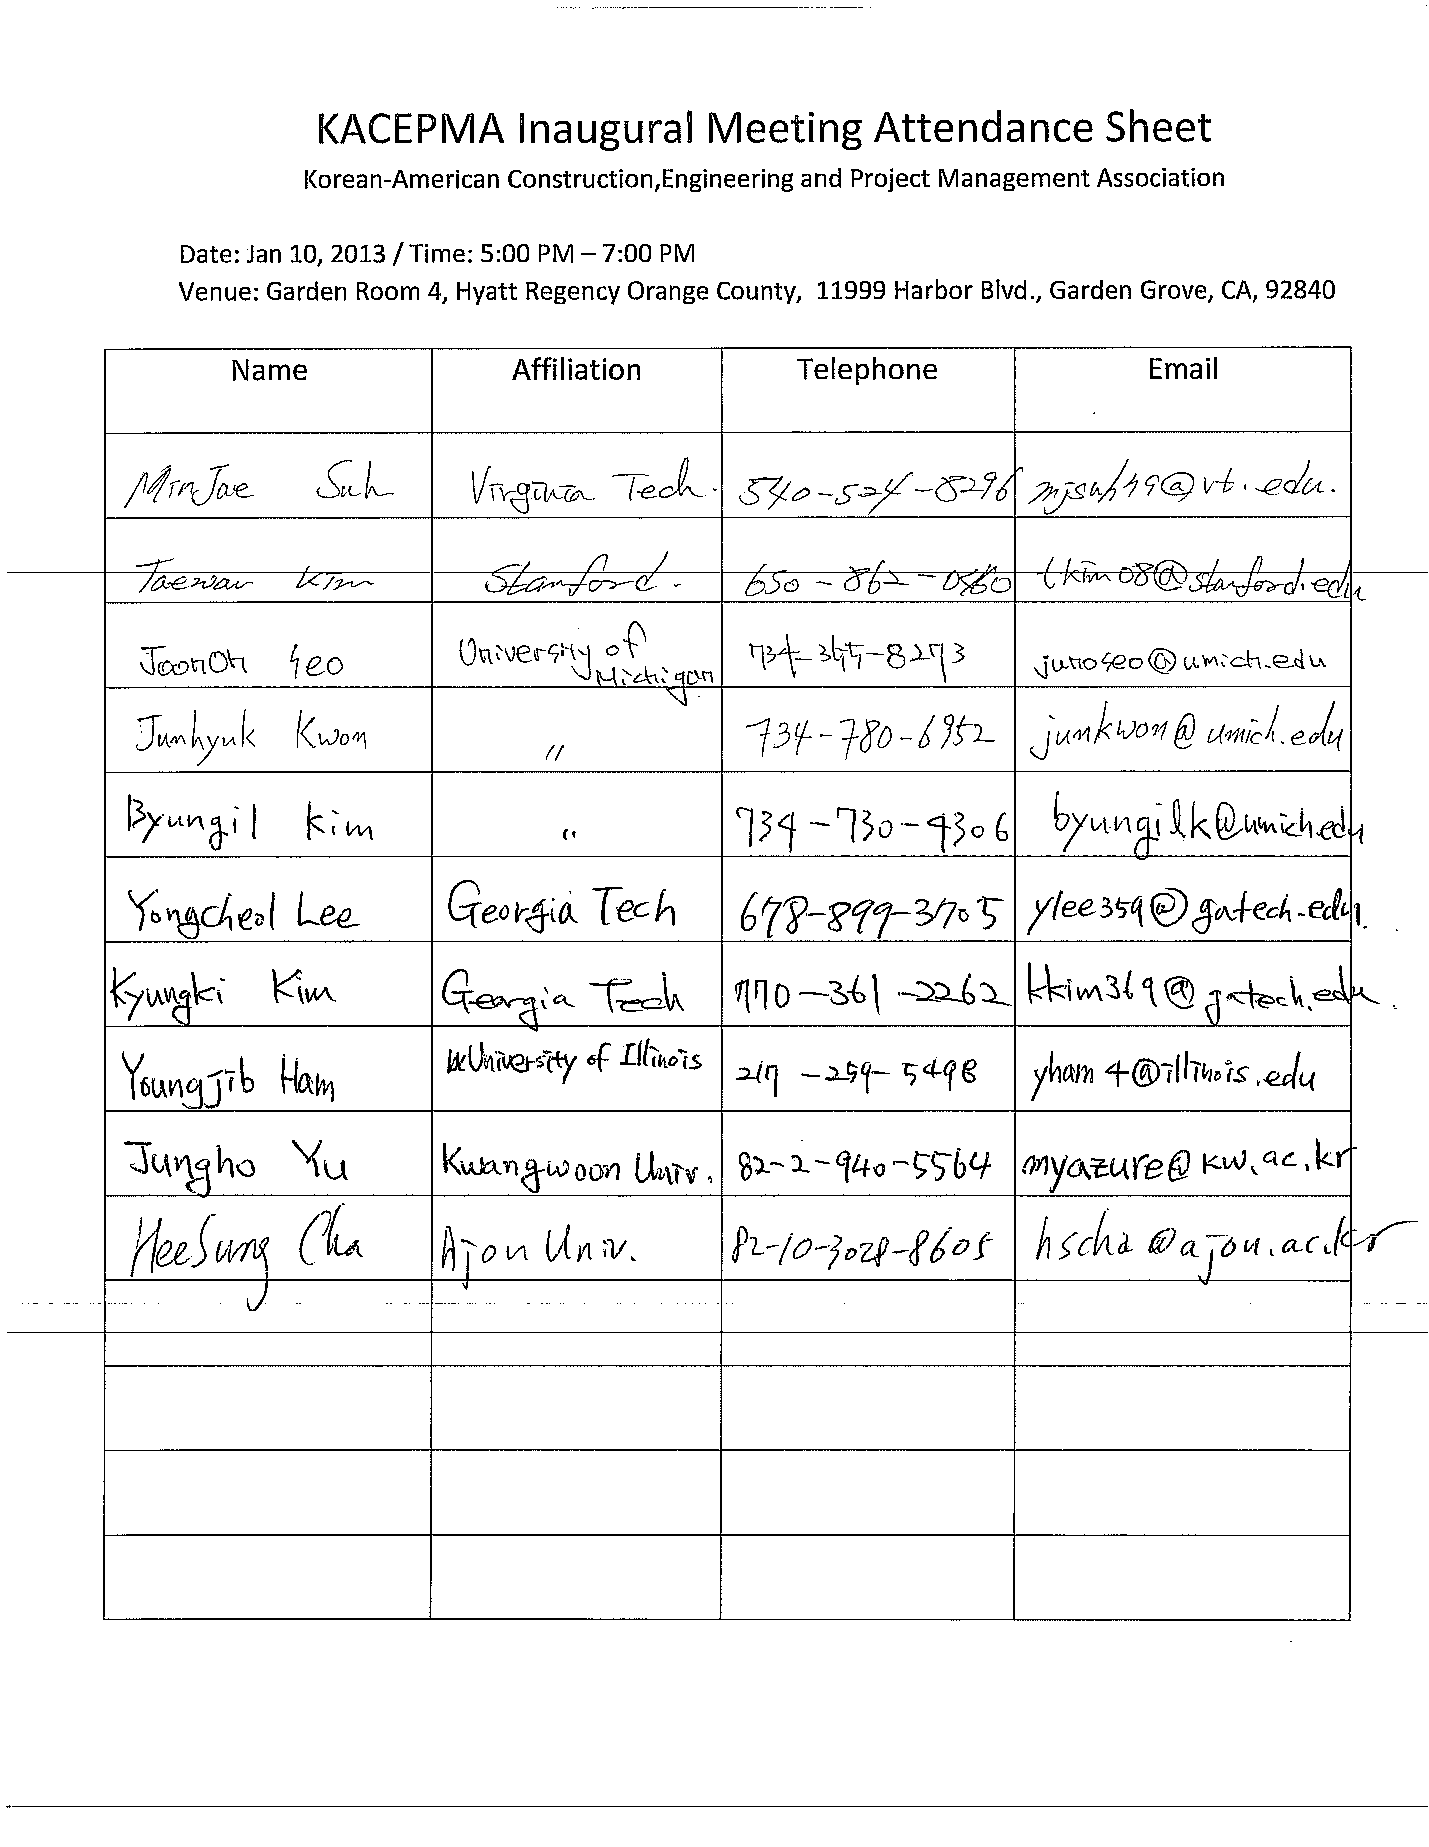 KACEPMA Inaugural Meeting Attendance Sheet
Korean-American Construction,Engineering and Project Management Association
Date: Jan 10, 2013 / Time: 5:00 PM – 7:00 PM
Venue: Garden Room 4, Hyatt Regency Orange County, 11999 Harbor Blvd., Garden Grove, CA, 92840
Name Affiliation Telephone Email
MinJae Suh Virginia Tech. 540-524-8296 mjsuh79@vt.edu.
Taewan Kim Stanford. 650-862-0560 tkim08@stanford.edu
JoonOh Seo University of Michigan 734-355-8273 junoseo@umich.edu
Junhyuk Kwon " 734-780-6952 junkwon@umich.edu
Byungil Kim " 734-730-4306 byungilk@umich.edu
Yongcheol Lee Georgia Tech 678-899-3705 ylee359@gatech.edu
Kyungki Kim Georgia Tech 770-361-2262 kkim369@gatech.edu.
Youngjib Ham University of Illinois 217-259-5498 yham4@illinois.edu
Jungho Yu Kwangwoon Univ. 82-2-940-5564 myazure@kw.ac.kr
HeeSung Cha Ajou Univ. 82-10-3028-8605 hscha@ajou.ac.kr